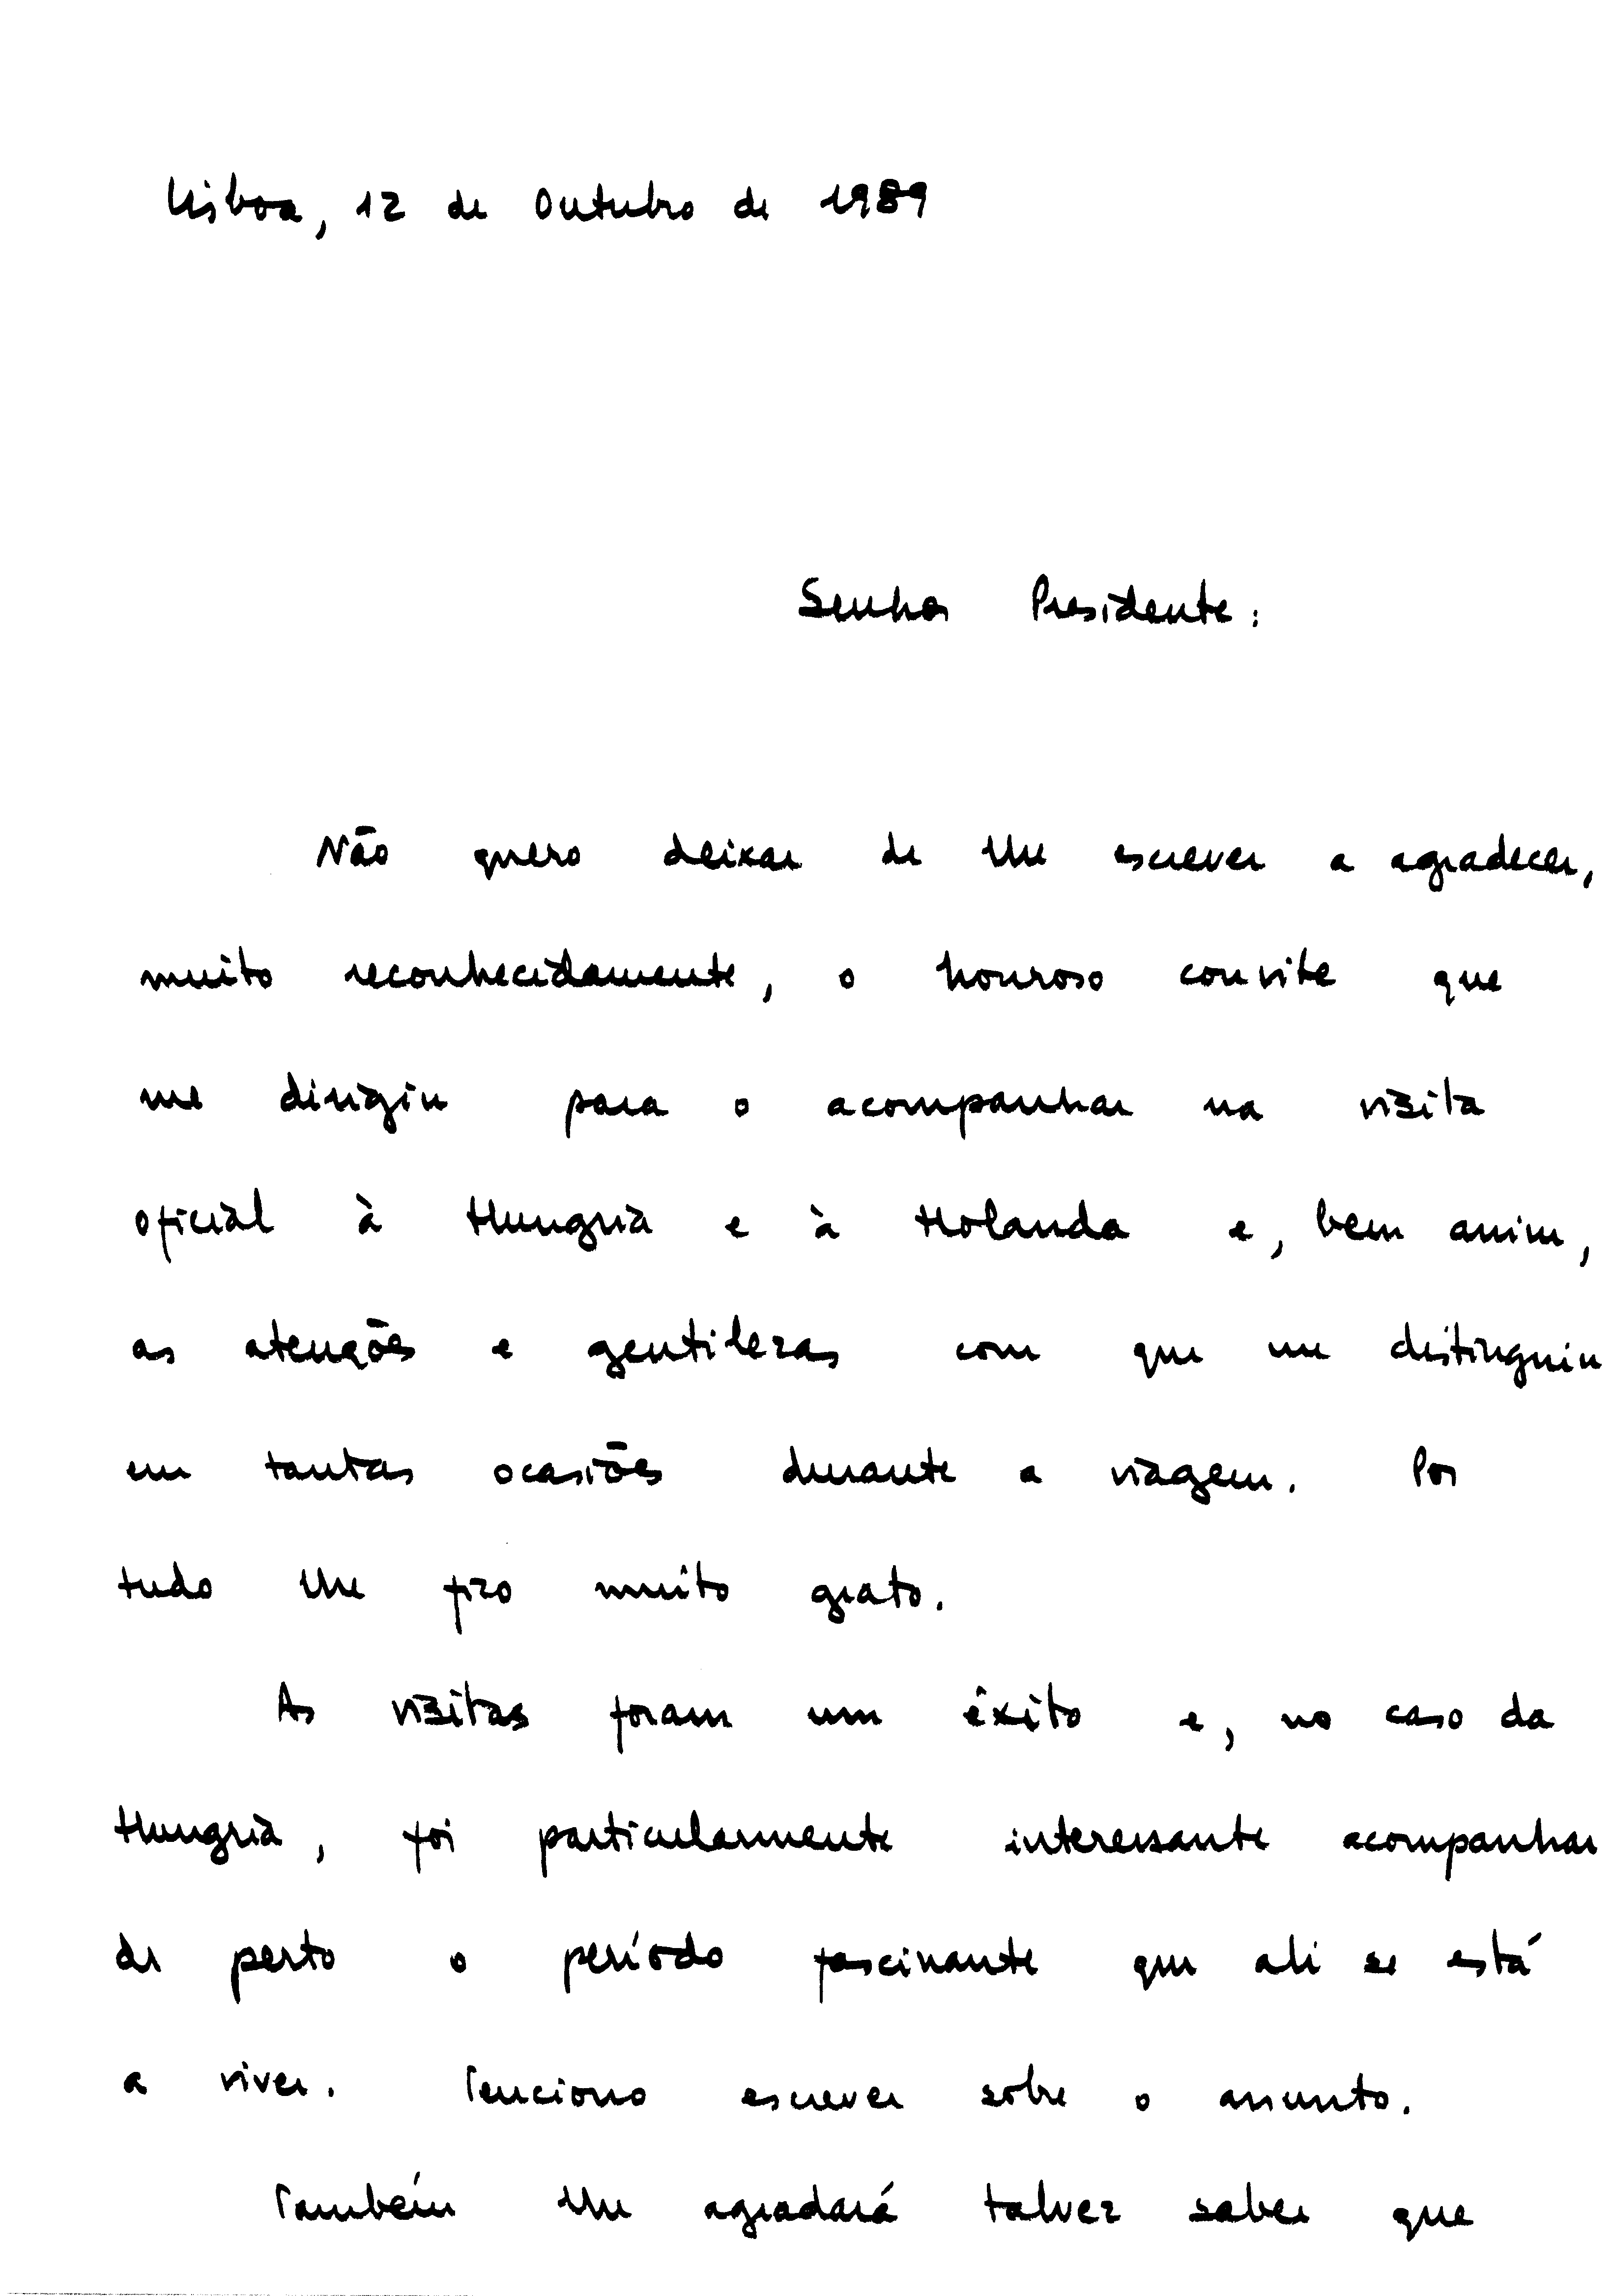 Lisboa, 12 de Outubro de 1989
Senhor Presidente:
Não quero deixar de lhe escrever a agradecer,
muito reconhecidamente, o honroso convite que
me dirigiu para o acompanhar na visita
oficial à Hungria e à Holanda e, bem assim,
as atenções e gentilezas com que me distinguiu
em tantas ocasiões durante a viagem. Por
tudo lhe fico muito grato.
As visitas foram um êxito e, no caso da
Hungria, foi particularmente interessante acompanhar
de perto o período fascinante que ali se está
a viver. Tenciono escrever sobre o assunto.
Também lhe agradará talvez saber que